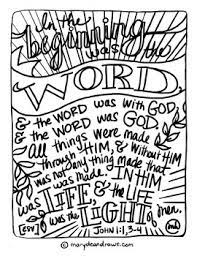 In the
beginning
was the
WORD,
& the WORD was with GOD,
& the WORD was GOD.
All things were made
through HIM, & without HIM
was not any thing made that
was made. IN HIM
was LIFE, & the LIFE
was the LIGHT of men.
[ESV] JOHN 1:1, 3-4
© marydeandraws.com